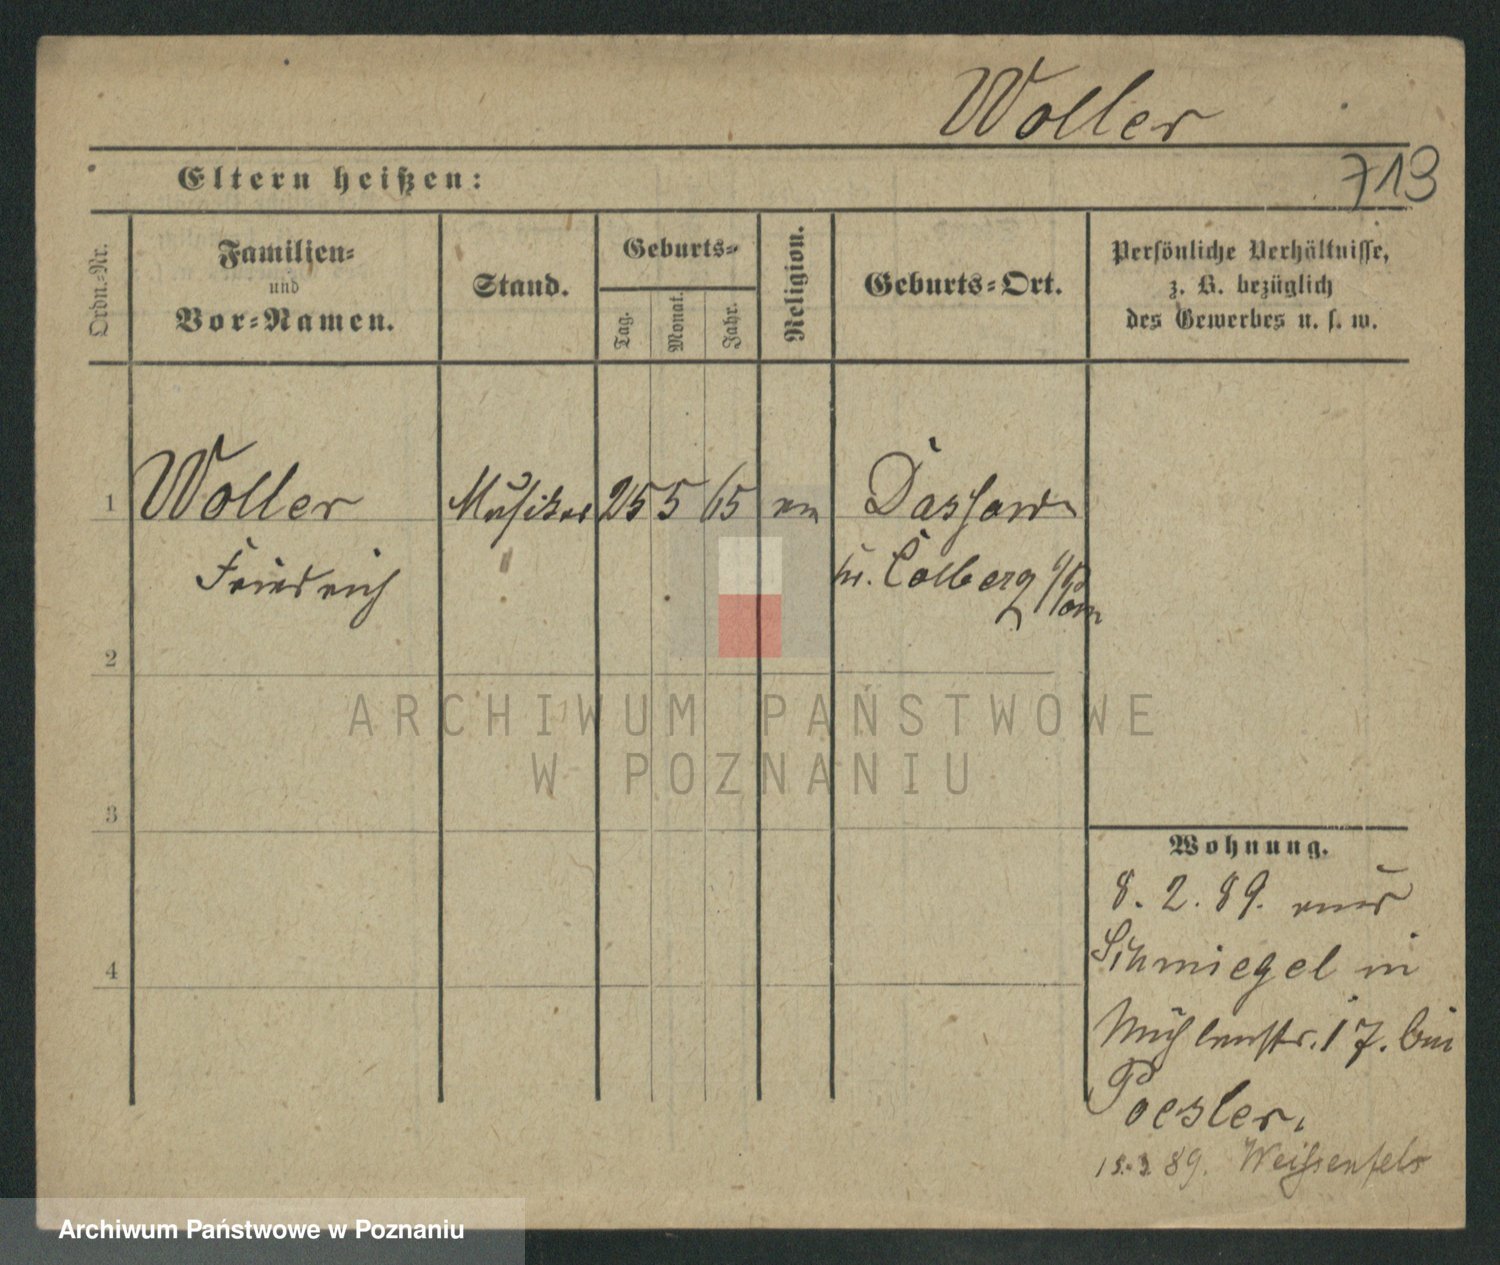 Woller
713
Eltern heißen:
Ordn.-Nr.
Familien-
und
Vor-Namen.
Stand.
Geburts-
Tag.
Monat.
Jahr.
Religion.
Geburts-Ort.
Persönliche Verhältnisse,
z. B. bezüglich
des Gewerbes u. s. w.
1 Woller Musiker 25 5 65 ev Dassow
Friedrich Kr. Colberg i/Pom
2
3
4
ARCHIWUM PAŃSTWOWE
W POZNANIU
Wohnung.
8. 2. 89. aus
Schmiegel in
Mühlenstr. 17. bei
Poesler.
89. Weißenfels
Archiwum Państwowe w Poznaniu